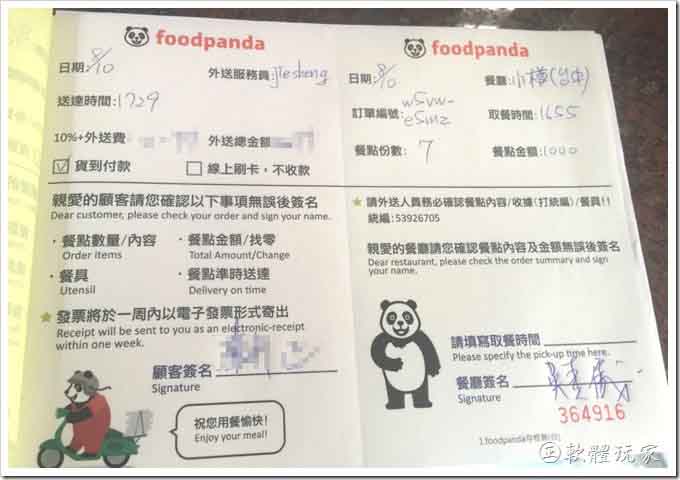 foodpanda
日期:8/10
外送服務員:Jiesheng
送達時間:1729
10%+外送費
外送總金額
☑ 貨到付款
□ 線上刷卡,不收款
親愛的顧客請您確認以下事項無誤後簽名
Dear customer, please check your order and sign your name.
・餐點數量/內容
Order items
・餐點金額/找零
Total Amount/Change
・餐具
Utensil
・餐點準時送達
Delivery on time
★ 發票將於一周內以電子發票形式寄出
Receipt will be sent to you as an electronic-receipt
within one week.
顧客簽名
Signature
祝您用餐愉快!
Enjoy your meal!
foodpanda
日期:8/10
餐廳:小樽(台中)
訂單編號:
取餐時間:1655
餐點份數:7
餐點金額:1000
★ 請外送人員務必確認餐點內容/收據(打統編)/餐具!!
統編:53926705
親愛的餐廳請您確認餐點內容及金額無誤後簽名
Dear restaurant, please check the order summary and sign
your name.
請填寫取餐時間
Please specify the pick-up time here.
餐廳簽名
Signature
364916
1.foodpanda存根聯(白)
軟體玩家